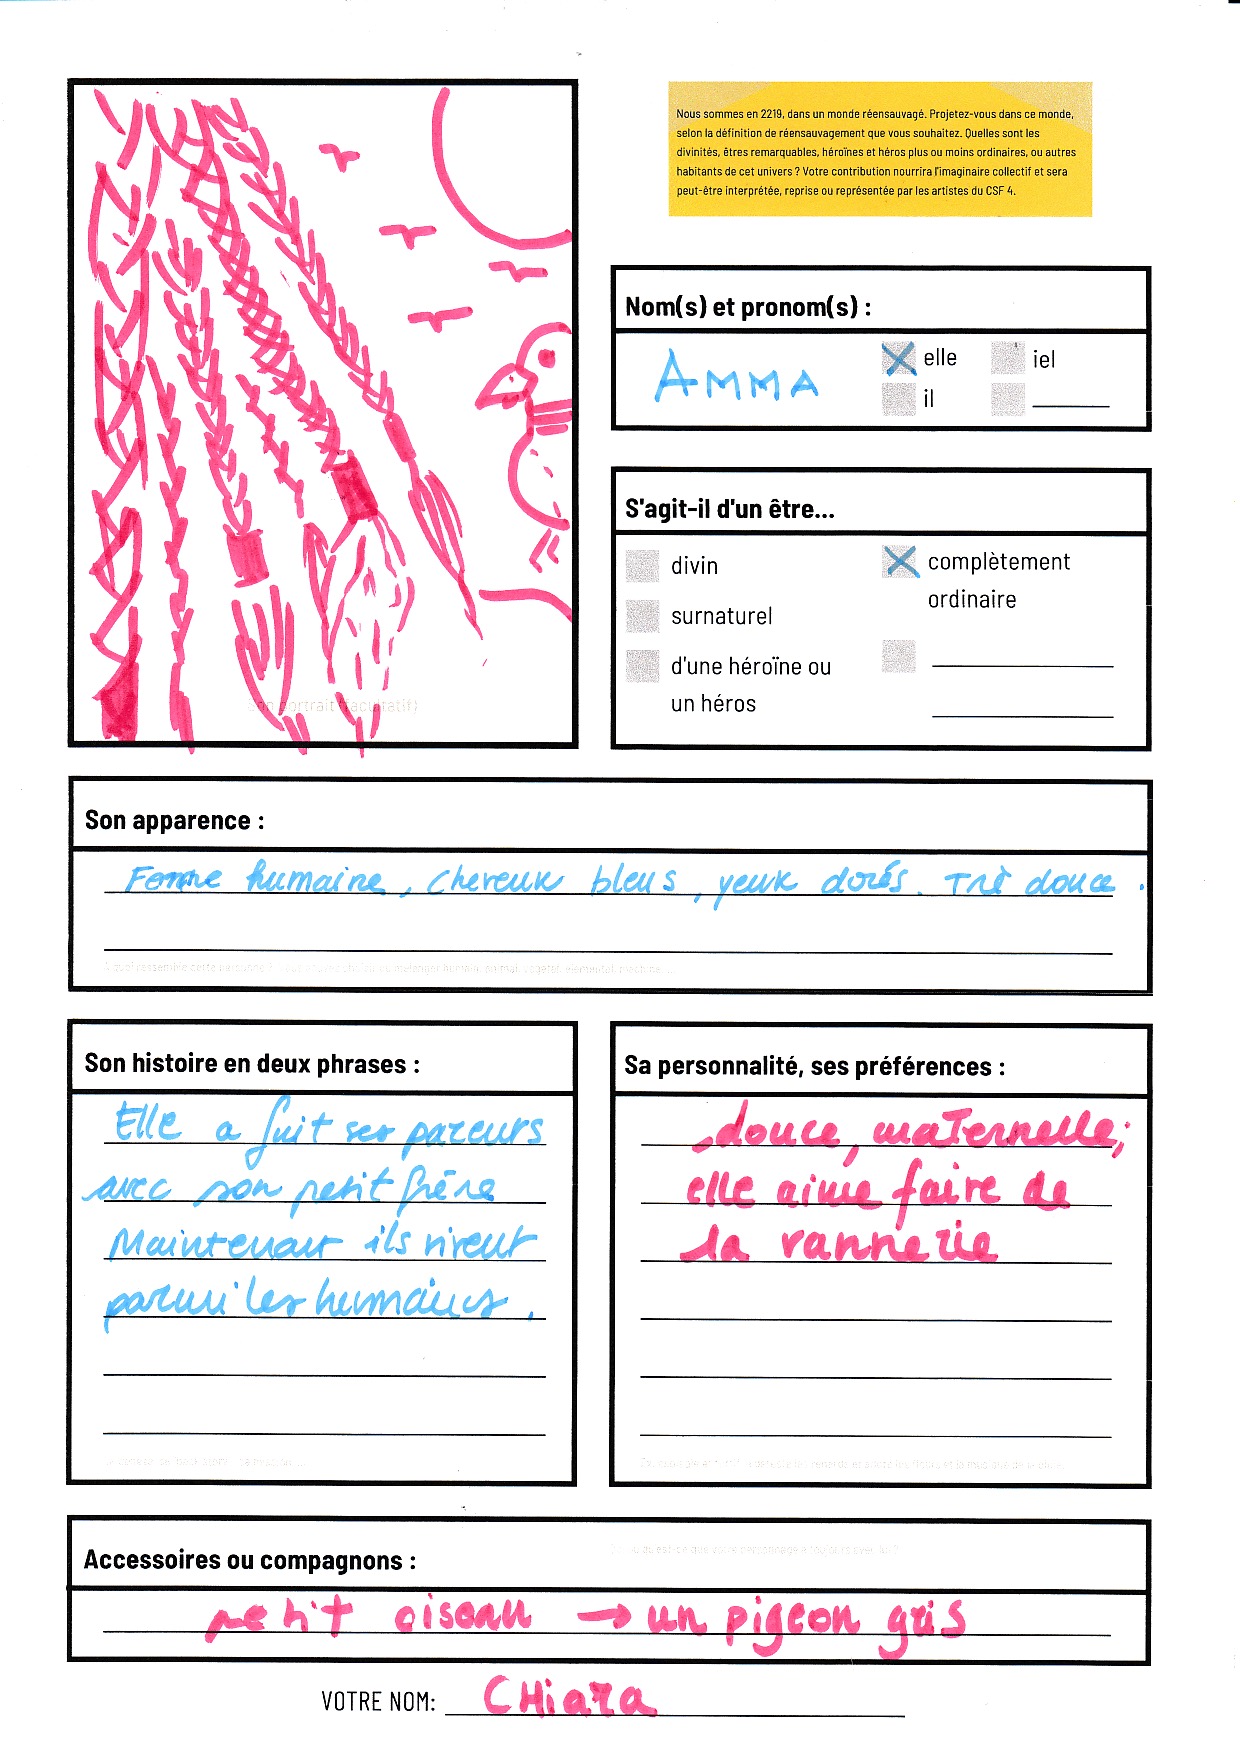 Nous sommes en 2219, dans un monde réensauvagé. Projetez-vous dans ce monde,
selon la définition de réensauvagement que vous souhaitez. Quelles sont les
divinités, êtres remarquables, héroïnes et héros plus ou moins ordinaires, ou autres
habitants de cet univers ? Votre contribution nourrira l'imaginaire collectif et sera
peut-être interprétée, reprise ou représentée par les artistes du CSF 4.
Nom(s) et pronom(s) :
AMMA
elle
iel
il
S'agit-il d'un être...
divin
complètement
ordinaire
surnaturel
d'une héroïne ou
un héros
Son portrait (facultatif)
Son apparence :
Femme humaine, cheveux bleus, yeux dorés. Trè douce.
Son histoire en deux phrases :
Elle a fuit ses pareurs
avec son petit frère
Maintenant ils vivent
parmi les humains.
Sa personnalité, ses préférences :
douce, maternelle;
elle aime faire de
la vannerie
Accessoires ou compagnons :
petit oiseau → un pigeon gris
VOTRE NOM: CHiara